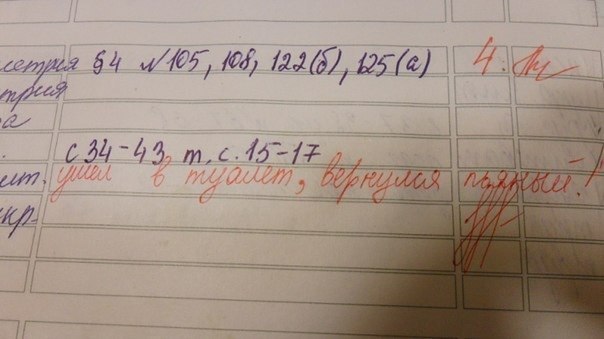 етрия §4 №105, 108, 122(б), 125(а) 4.
трия
а
с 34-43 т, с. 15-17
ит. ушел в туалет, вернулся пьяный!
укр.